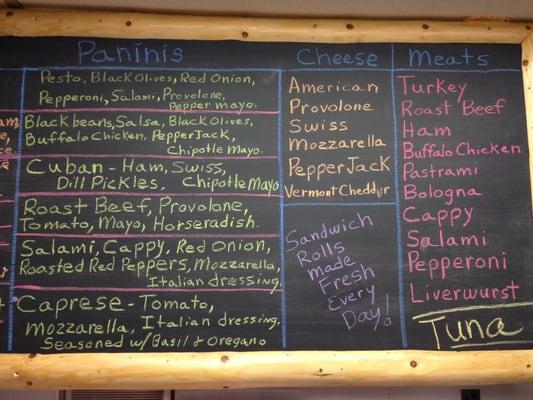 Paninis
Pesto, Black Olives, Red Onion,
Pepperoni, Salami, Provolone,
Pepper mayo.
Black beans, Salsa, Black Olives,
Buffalo Chicken, Pepper Jack,
Chipotle Mayo.
Cuban - Ham, Swiss,
Dill Pickles, Chipotle Mayo
Roast Beef, Provolone,
Tomato, Mayo, Horseradish.
Salami, Cappy, Red Onion,
Roasted Red Peppers, Mozzarella,
Italian dressing.
Caprese - Tomato,
Mozzarella, Italian dressing.
Seasoned w/ Basil & Oregano
Cheese
American
Provolone
Swiss
Mozzarella
Pepper Jack
Vermont Cheddar
Sandwich
Rolls
made
Fresh
Every
Day!
Meats
Turkey
Roast Beef
Ham
Buffalo Chicken
Pastrami
Bologna
Cappy
Salami
Pepperoni
Liverwurst
Tuna